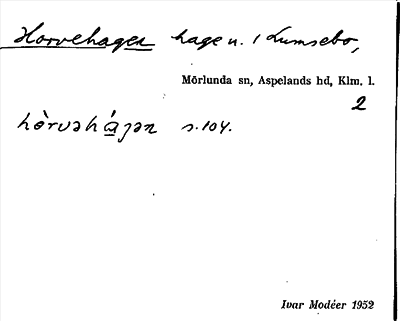 Horvehagen hage u. / Lumsebo,
Mörlunda sn, Aspelands hd, Klm. l.
2
hòrvəhágən s. 104.
Ivar Modéer 1952